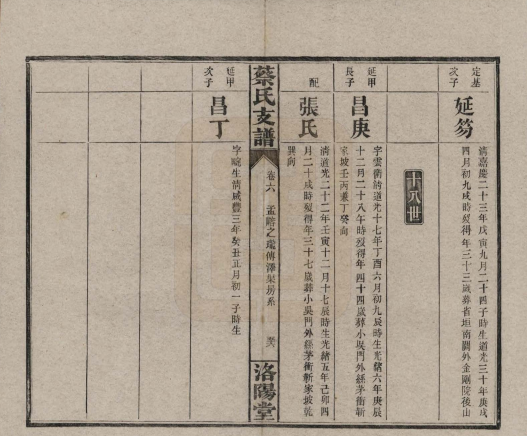 定基
次子
延芴
清嘉慶二十三年戊寅九月二十四子時生道光三十年庚戌
四月初九戌時歿得年三十三歲葬省垣南關外金剛院後山
十八世
延甲
長子
昌庚
字雲衢清道光十七年丁酉六月初九辰時生光緒六年庚辰
十二月二十八午時歿得年四十四歲葬小吳門外絲茅衝靳
家坡壬丙兼丁癸向
配
張氏
清道光二十二年壬寅十二月十七辰時生光緒五年己卯四
月二十戌時歿得年三十七歲葬小吳門外絲茅衝靳家坡乾
巽向
蔡氏支譜
卷六
孟階之
傅澤
房系
洛陽堂
延甲
次子
昌丁
字 生清咸豐三年癸丑正月初一子時生